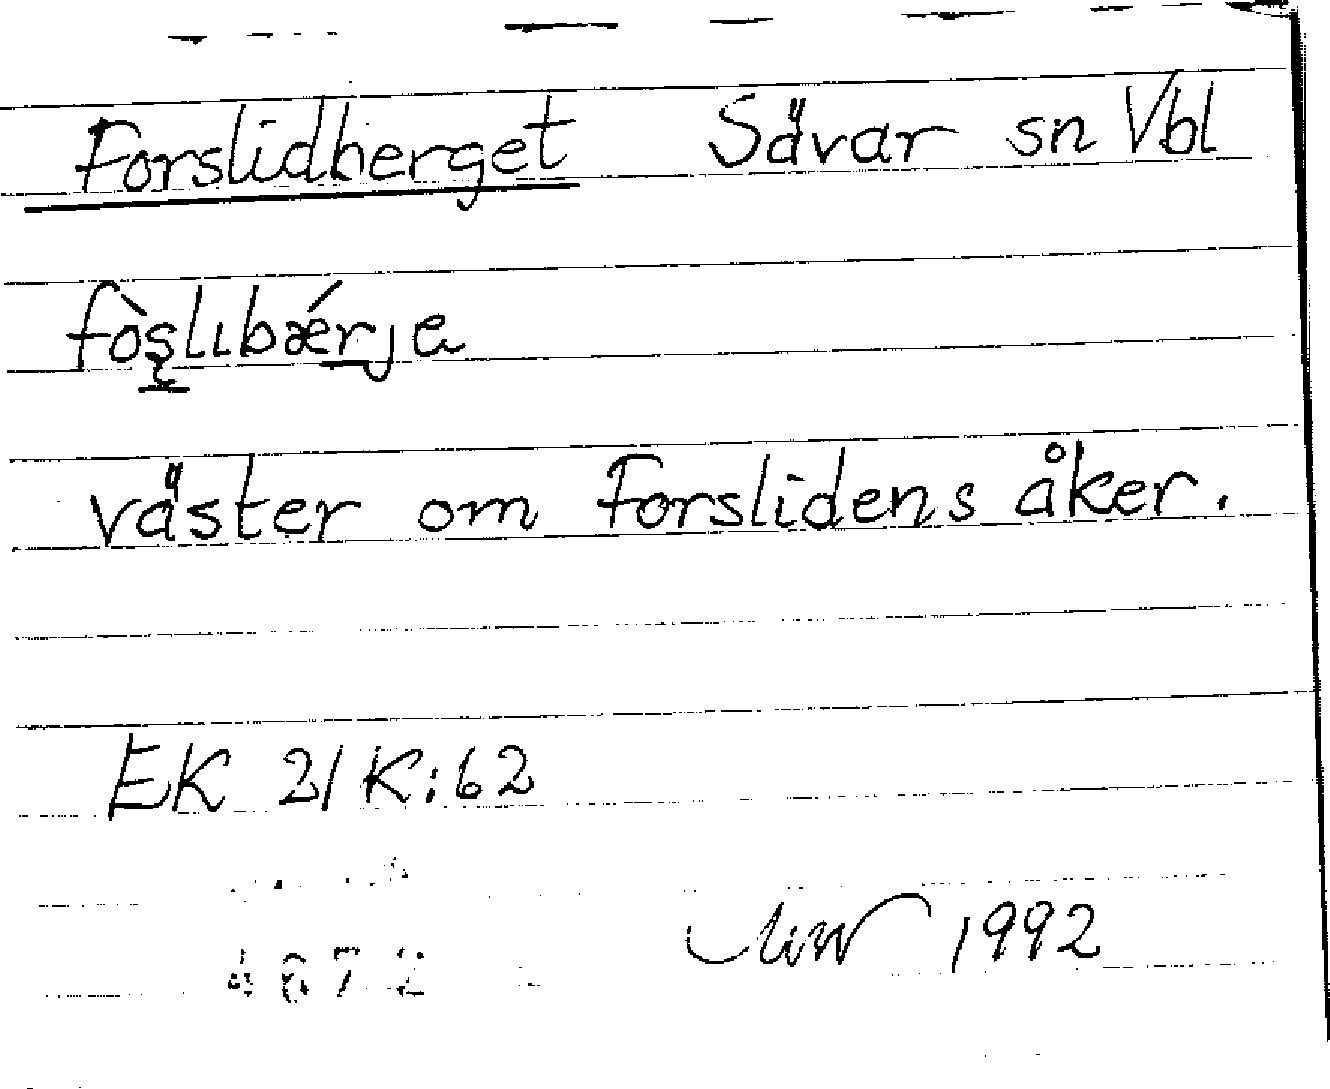 Forslidberget Sävar sn Vbl
fòşlıbǽrja
väster om Forslidens åker.
EK 21K:62
1992